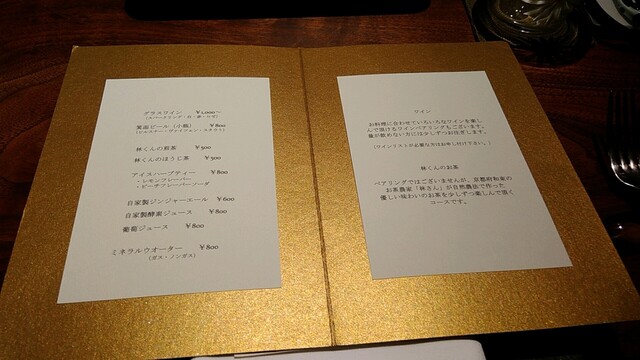 グラスワイン ¥1,000～
(スパークリング・白・赤・ロゼ)
¥800
林くんの煎茶 ¥500
林くんのほうじ茶 ¥500
アイスハーブティー ¥800
・レモンフレーバー
・ピーチフレーバーソーダ
自家製ジンジャーエール ¥600
自家製酵素ジュース ¥800
葡萄ジュース ¥800
ミネラルウオーター ¥800
(ガス・ノンガス)
ワイン
お料理に合わせていろいろなワインを楽し
んで頂けるワインペアリングもございます。
量が飲めない方には少しずつお注ぎします。
(ワインリストが必要な方はお申し付け下さい。)
林くんのお茶
ペアリングではございませんが、京都府和束の
お茶農家「林さん」が自然農法で作った
優しい味わいのお茶を少しずつ楽しんで頂く
コースです。